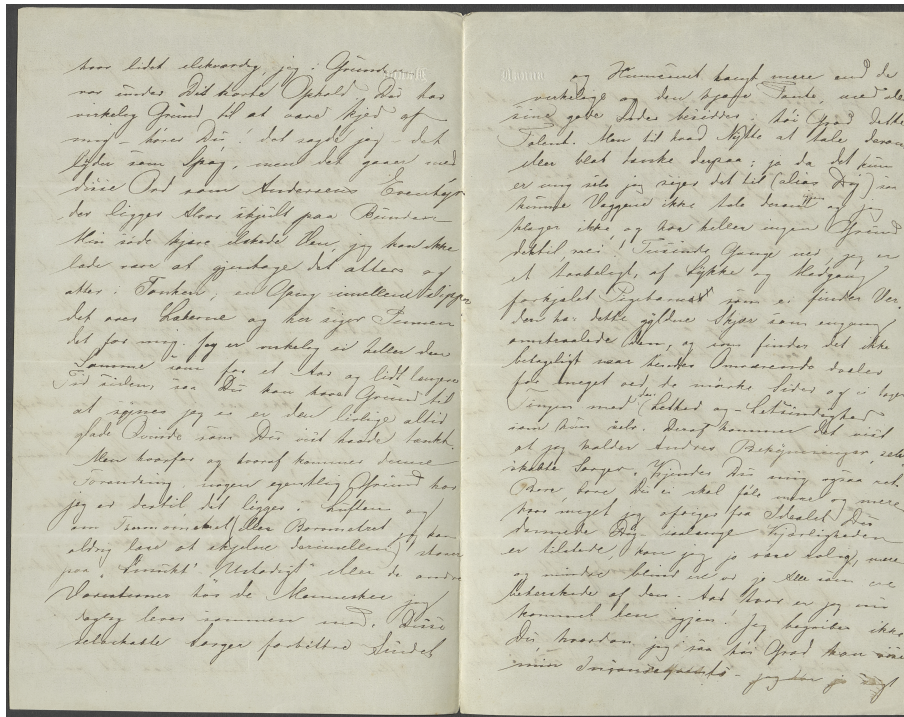 hvor lidet elskværdig jeg i Grunden
var under Dit korte Ophold Du har
virkelig Grund til at være kjed af
mig – hører Du! det sagde jeg – det
lyder som Spøg, men det gaaer med
disse Ord som Andersens Eventyr
der ligger Alvor skjult paa Bunden
Min søde kjære elskede Ven, jeg kan ikke
lade være at gjentage det atter og
atter i Tanken; en Gang imellem
det over Læberne og her siger Pennen
det for mig. Jeg er virkelig ei heller den
Samme som for et Aar og lidt længere
Tid siden, saa Du kan have Grund til
at synes jeg ei er den livlige altid
glade Qvinde som Du vist havde tænkt.
Men hvorfor og hvoraf kommer denne
Forandring, nogen egentlig Grund har
jeg ei dertil det ligger i Luften og
om Termometret (eller Barometret jeg kan
aldrig lære at skjelne derimellem) staaer
paa "Smukt" "Ustadigt" eller de andre
Variationer hos de Mennesker jeg
daglig lever sammen med. Disse
selvskabte Sorger forbittre Sindet
og Humeuret langt mere end de
virkelige og den kjære Tante, med alle
sine gode Sider besidder i høi Grad dette
Talent. Men til hvad Nytte at tale derom
eller blot tænke derpaa; ja da det kun
er mig selv jeg siger det til (alias Dig) saa
kunne Væggene ikke tale derom og jeg
klager ikke og har heller ingen Grund
dertil nei! Tusinde Gange nei, jeg er
et taabeligt, af Lykke og Medgang
forkjælet Pigebarn som ei finder Ver
den har dette gyldne Skjær som engang
omstraalede den, og som finder det ikke
behageligt naar hendes Omværende dvæler
for meget ved de mørke Sider og ei tager
Tingen med den Lethed og – Letsindighed
som hun selv. Deraf kommer det vist
at jeg kalder Andres Bekymringer, selv
skabte Sorger. Kjender Du mig ogsaa ret
Bare, bare Du ei skal føle mere og mere
hvor meget jeg afviger fra Idealet Du
dannede Dig saalænge Kjærligheden
er tilstede, kan jeg jo være rolig, mere
og mindre blind ere vi jo Alle som ere
beherskede af den. Aad hvor er jeg nu
kommet hen igjen! Jeg begriber ikke
Du, hvordan jeg i saa høi Grad kan
min Inconsequents – jeg har jo sagt